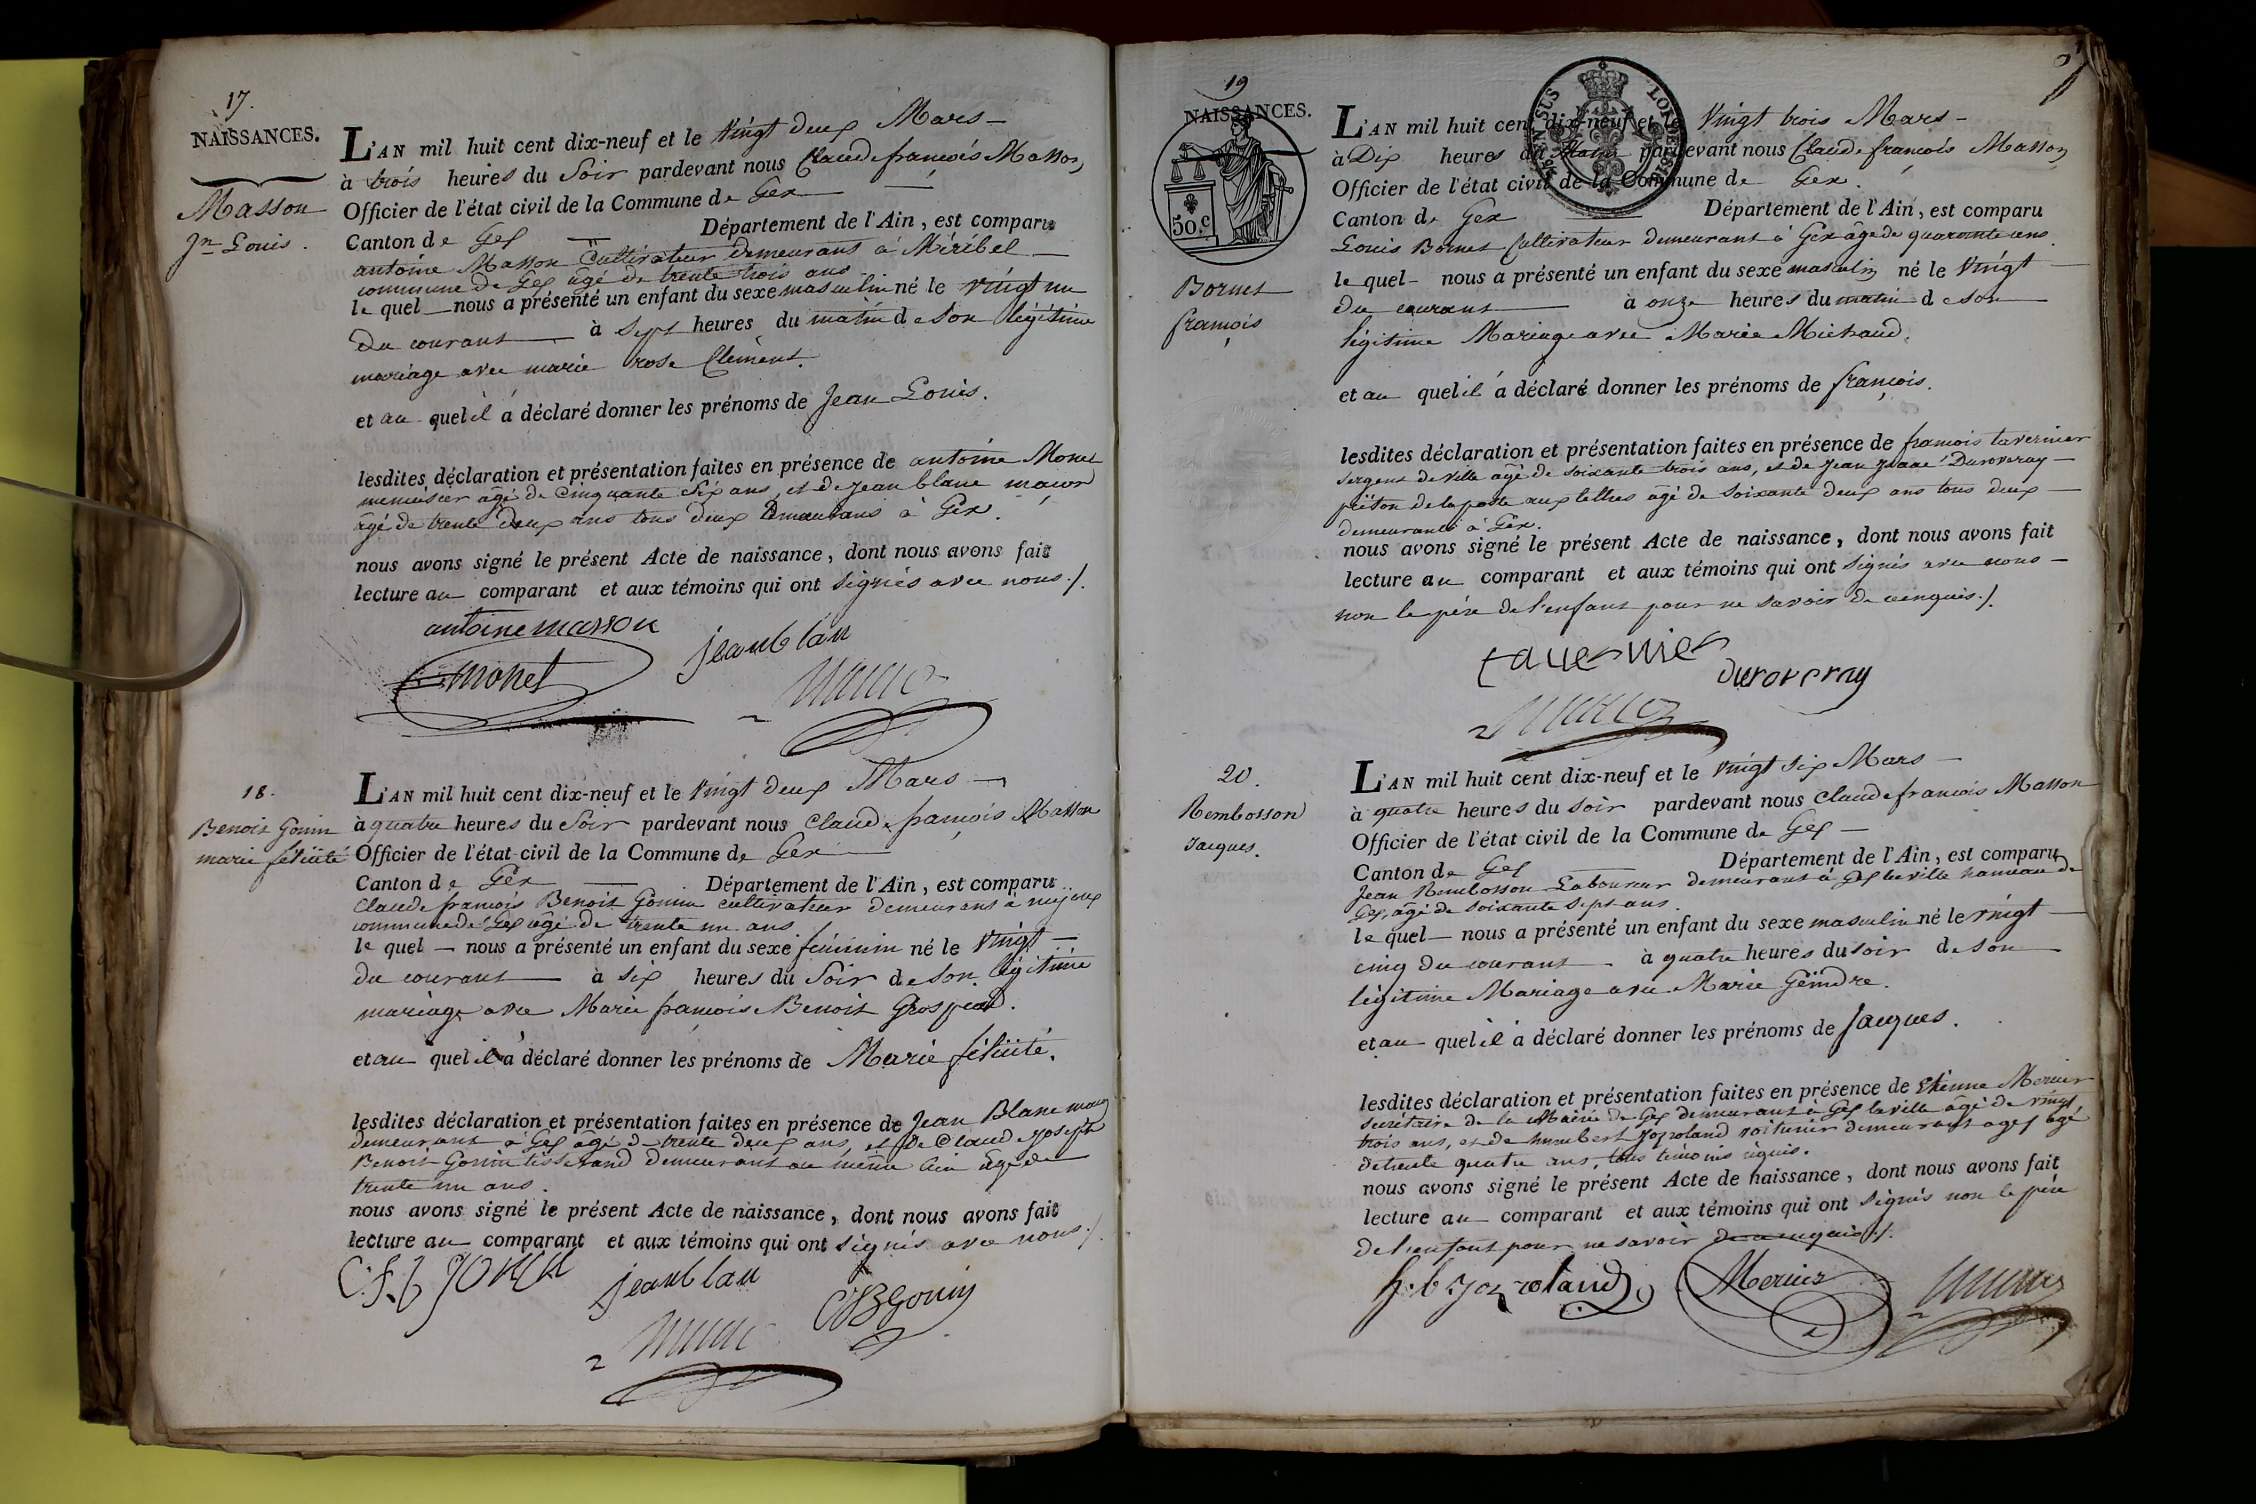 17.
NAISSANCES.
Masson
Jn Louis.
L'AN mil huit cent dix-neuf et le Vingt deux Mars
à trois heures du Soir pardevant nous Claude françois Masson
Officier de l'état civil de la Commune de Gex
Canton de Gex Département de l'Ain, est comparu
antoine Masson Cultivateur demeurant à Miribel
commune de Gex âgé de trente trois ans
le quel nous a présenté un enfant du sexe masculin né le vingt un
du courant à Sept heures du matin de son légitime
mariage avec marie rose Clément.
et au quel il a déclaré donner les prénoms de Jean Louis.
lesdites déclaration et présentation faites en présence de antoine Monet
menuisier âgé de Cinquante Six ans, et de Jean blanc maçon
âgé de trente deux ans tous deux demeurans à Gex.
nous avons signé le présent Acte de naissance, dont nous avons fait
lecture au comparant et aux témoins qui ont signés avec nous ./.
antoine masson
jean blan
monet
18.
Benoit Gonin
marie félicité
L'AN mil huit cent dix-neuf et le Vingt deux Mars
à quatre heures du Soir pardevant nous Claude françois Masson
Officier de l'état civil de la Commune de Gex
Canton de Gex Département de l'Ain, est comparu
Claude françois Benoit Gonin cultivateur demeurant à mijoux
commune de Gex âgé de trente un ans
le quel nous a présenté un enfant du sexe féminin né le vingt
du courant à six heures du Soir de son légitime
mariage avec Marie françoise Benoit Grospiod.
et au quel il a déclaré donner les prénoms de Marie félicité.
lesdites déclaration et présentation faites en présence de Jean Blanc maçon
demeurant à Gex âgé de trente deux ans, et de Claude joseph
Benoit Gonin tisserand demeurant au même lieu âgé de
trente un ans.
nous avons signé le présent Acte de naissance, dont nous avons fait
lecture au comparant et aux témoins qui ont signés avec nous ./.
jean blan
CJBGonin
19
NAISSANCES.
50.c
Bornet
françois
L'AN mil huit cent dix-neuf et le Vingt trois Mars
à Dix heures du Matin pardevant nous Claude françois Masson
Officier de l'état civil de la Commune de Gex.
Canton de Gex Département de l'Ain, est comparu
Louis Bornet Cultivateur demeurant à Gex âgé de quarante ans
le quel nous a présenté un enfant du sexe masculin né le Vingt
du courant à onze heures du matin de son
légitime Mariage avec Marie Michaud.
et au quel il a déclaré donner les prénoms de françois.
lesdites déclaration et présentation faites en présence de françois tavernier
Sergent de ville âgé de soixante trois ans, et de Jean isaac Duroveray
piéton de la poste aux lettres âgé de Soixante deux ans tous deux
demeurants à Gex.
nous avons signé le présent Acte de naissance, dont nous avons fait
lecture au comparant et aux témoins qui ont signés avec nous
non le père de l'enfant pour ne savoir de ce enquis ./.
tavernier
duroveray
20.
Rembosson
Jacques.
L'AN mil huit cent dix-neuf et le Vingt six Mars
à quatre heures du soir pardevant nous Claude francois Masson
Officier de l'état civil de la Commune de Gex
Canton de Gex Département de l'Ain, est comparu
Jean Rembosson Laboureur demeurant à Gex la ville hameau de
Gex, âgé de soixante sept ans.
le quel nous a présenté un enfant du sexe masculin né le vingt
cinq du courant à quatre heures du soir de son
légitime Mariage avec Marie Geindre.
et au quel il a déclaré donner les prénoms de Jacques.
lesdites déclaration et présentation faites en présence de Etienne Mercier
secrétaire de la Mairie de Gex demeurant à Gex la ville âgé de vingt
trois ans, et de humbert voiturier demeurant a gex agé
de trente quatre ans, tous témoins réquis.
nous avons signé le présent Acte de naissance, dont nous avons fait
lecture au comparant et aux témoins qui ont signés non le père
de l'enfant pour ne savoir de ce enquis ./.
Mercier